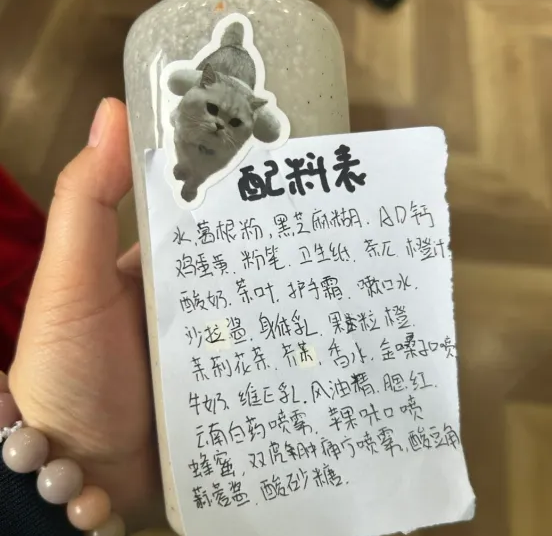 配料表
水,葛根粉,黑芝麻糊.AD钙
鸡蛋黄.粉笔.卫生纸.茶爪.橙汁
酸奶.茶叶.护手霜.漱口水.
沙拉酱.身体乳.果粒橙
茉莉花茶.芥末.香水.金嗓子口喷
牛奶.维E乳.风油精.腮红.
云南白药喷雾.苹果味口喷
蜂蜜,双虎肿痛宁喷雾.酸豆角
蒜蓉酱.酸砂糖.